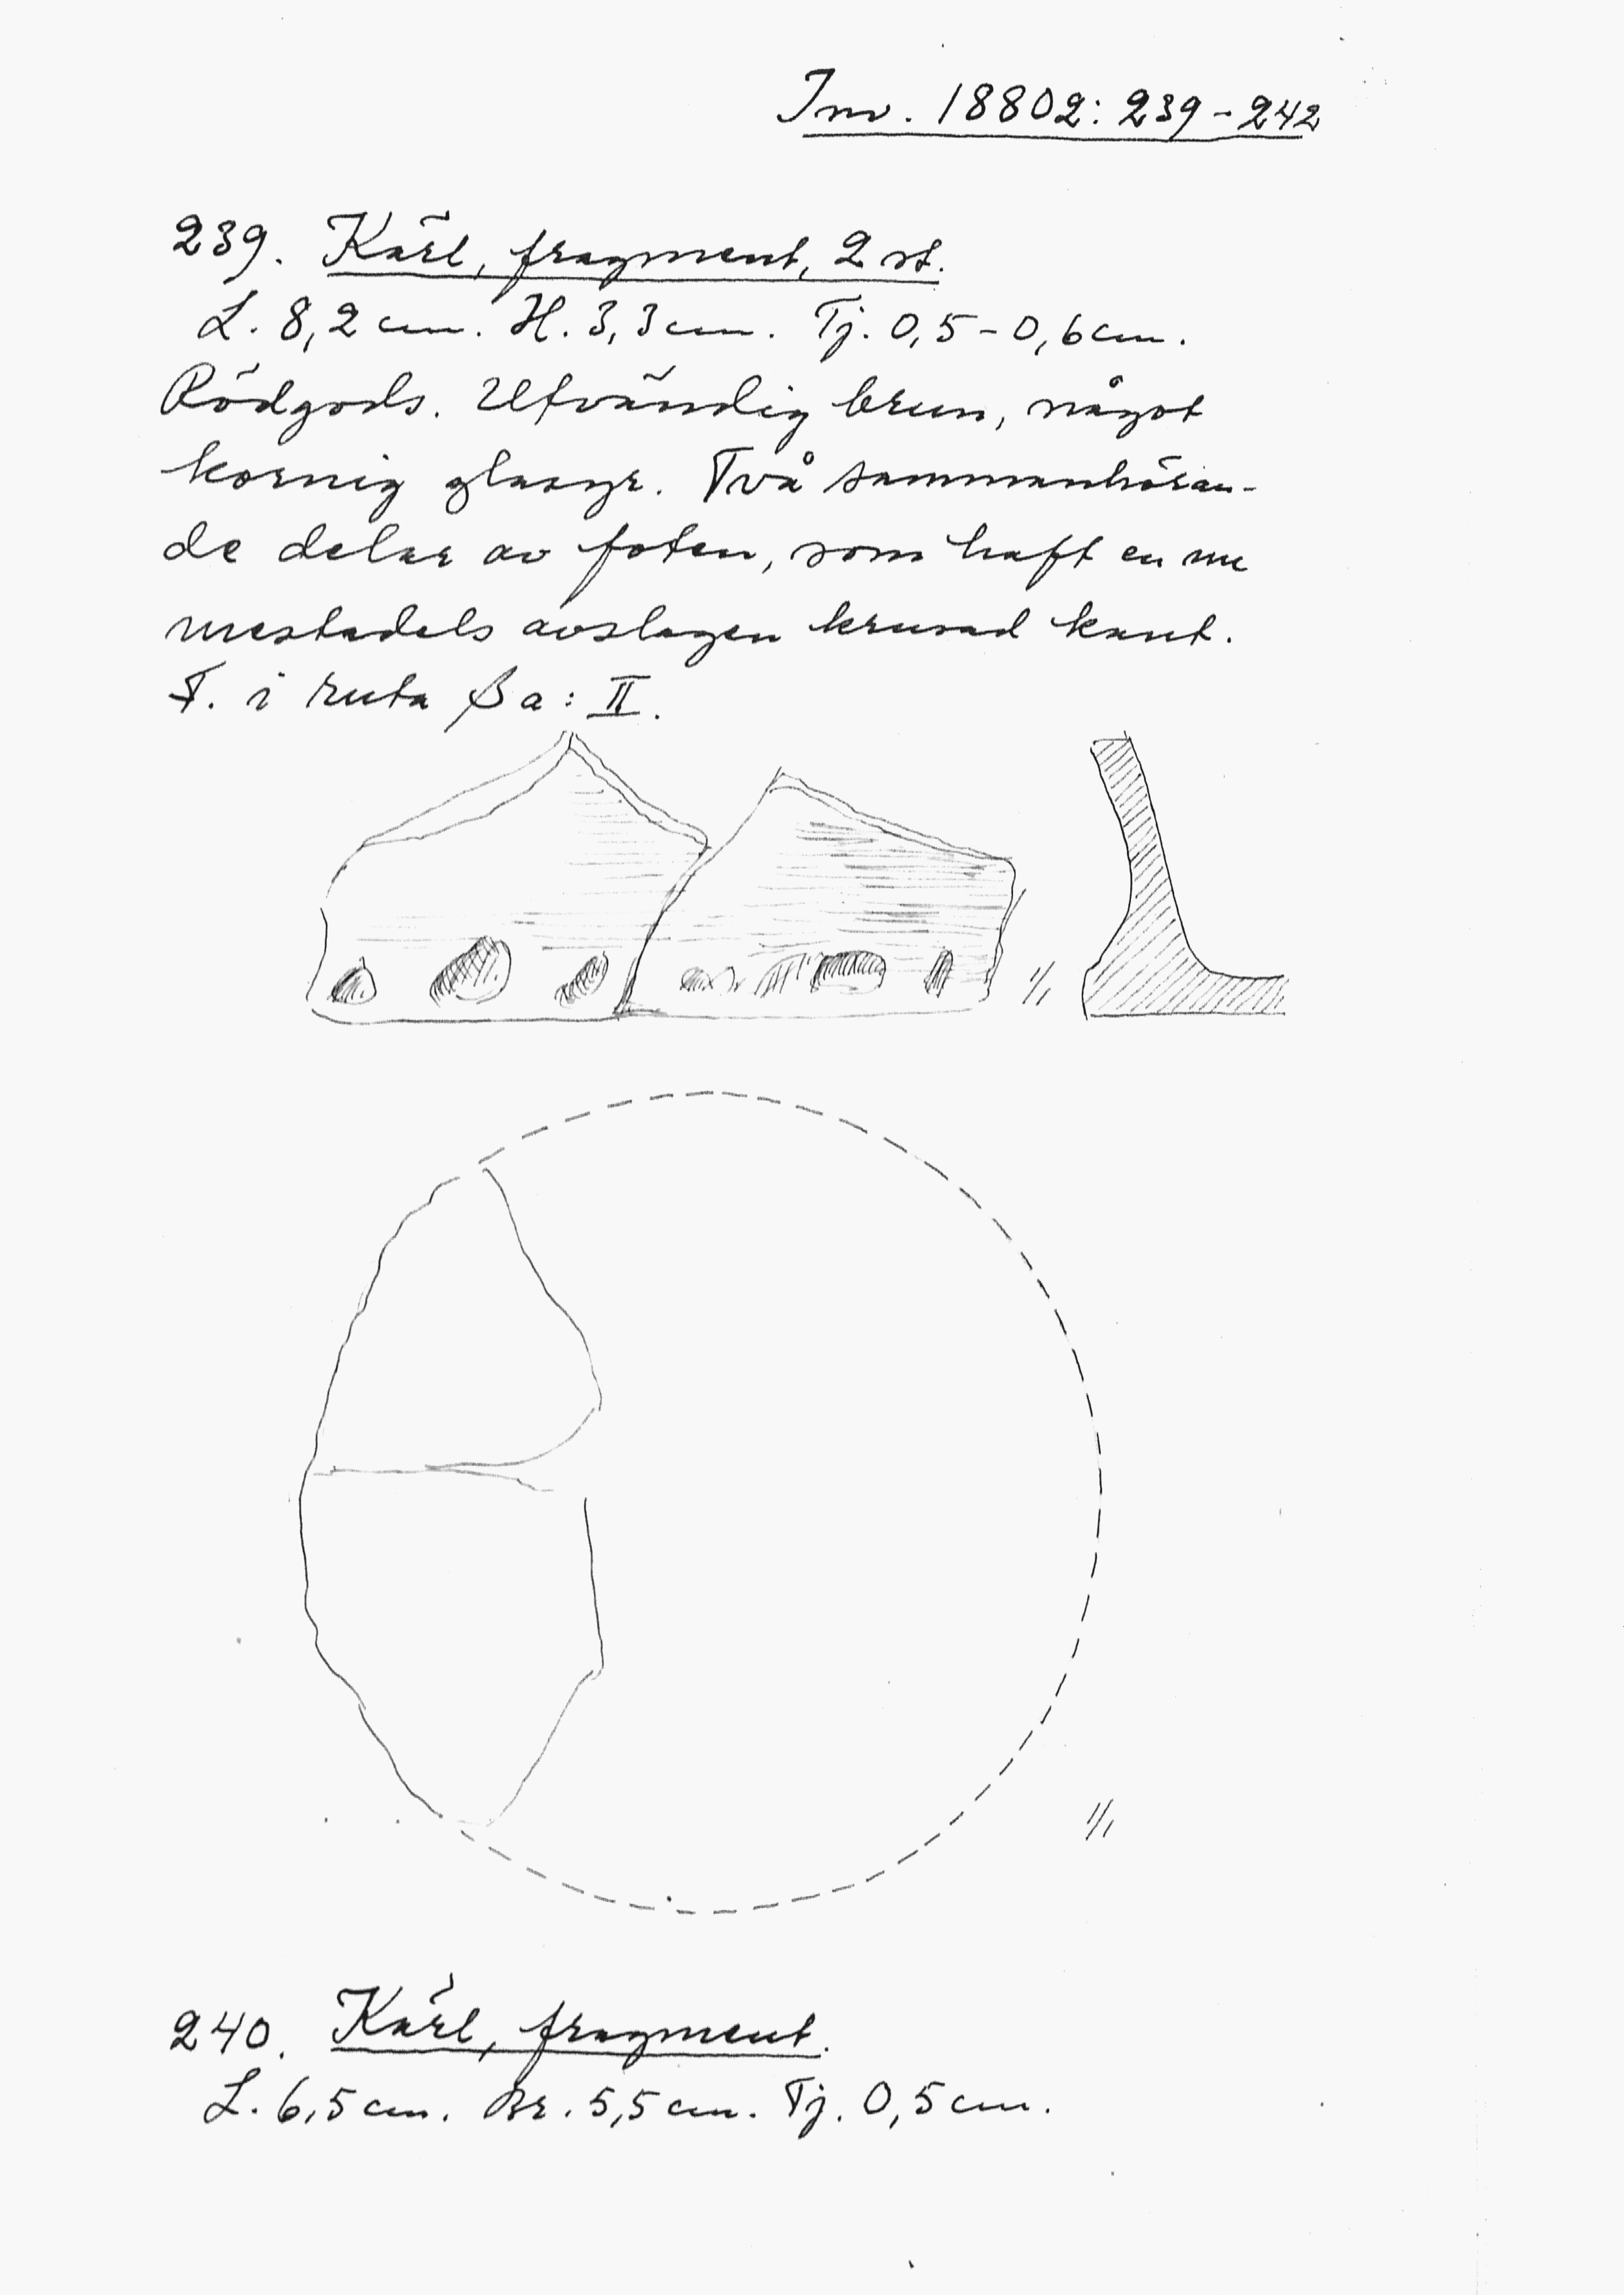 Inv. 18802: 239-242
239. Kärl, fragment, 2 st.
L. 8,2 cm. H. 3,3 cm. Tj. 0,5-0,6 cm.
Rödgods. Utvändig brun, något
kornig glasyr. Två sammanhöran-
de delar av foten, som haft en nu
mestadels avslagen krusad kant.
F. i ruta βa: II.
1/1
1/1
240. Kärl, fragment.
L. 6,5 cm. Br. 5,5 cm. Tj. 0,5 cm.